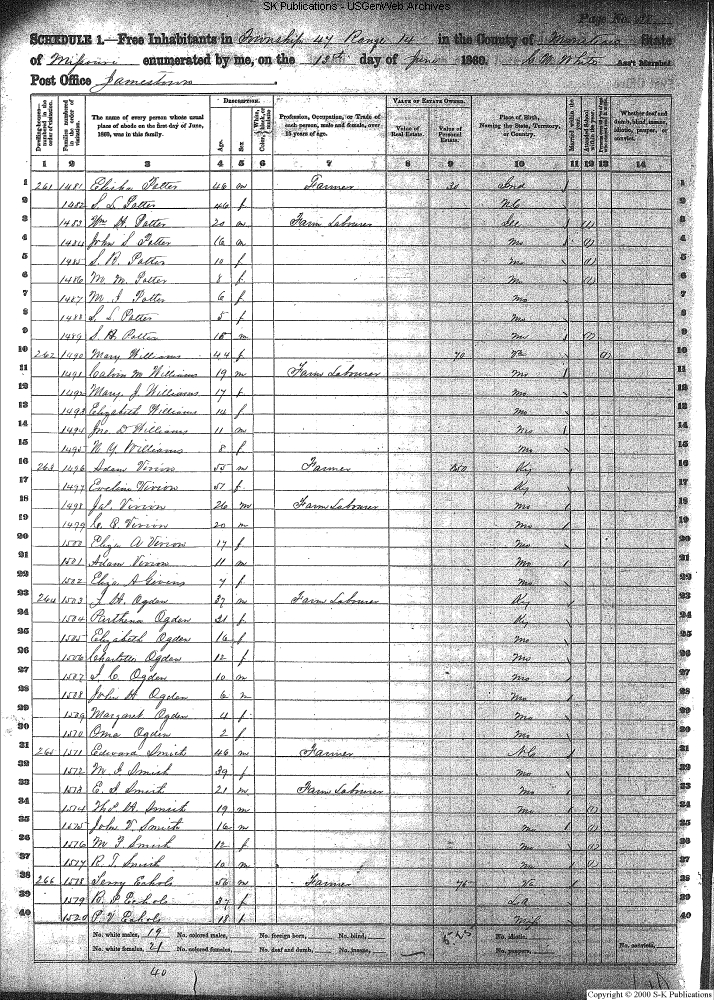 SK Publications - USGenWeb Archives
Page No.
SCHEDULE 1.—Free Inhabitants in Township 47 Range 14 in the County of Moniteau State
of Missouri enumerated by me, on the 13th day of June 1860. S. W. White Ass't Marshal
Post Office Jamestown
Dwelling-houses—numbered in the order of visitation.
Families numbered in the order of visitation.
The name of every person whose usual place of abode on the first day of June, 1860, was in this family.
DESCRIPTION.
Age.
Sex
Color,
White, black, or mulatto.
Profession, Occupation, or Trade of each person, male and female, over 15 years of age.
VALUE OF ESTATE OWNED.
Value of Real Estate.
Value of Personal Estate.
Place of Birth, Naming the State, Territory, or Country.
Married within the year.
Attended School within the year.
Whether deaf and dumb, blind, insane, idiotic, pauper, or convict.
1 2 3 4 5 6 7 8 9 10 11 12 13 14
1 261 1481 Elisha Potter 46 m Farmer 30 Ind / 1
2 1482 S. L. Potter 46 f NC 2
3 1483 Wm H. Potter 20 m Farm Labourer Ill / (1) 3
4 1484 John S Potter 16 m Mo / (1) 4
5 1485 S. R. Potter 10 f Mo (1) 5
6 1486 M. M. Potter 8 f Mo (1) 6
7 1487 M. J. Potter 6 f Mo 7
8 1488 S. L. Potter 5 f Mo 8
9 1489 S. H. Potter 15 m Mo (1) 9
10 262 1490 Mary Williams 44 f 70 Va (1) 10
11 1491 Calvin M Williams 19 m Farm Labourer Mo / 11
12 1492 Mary J Williams 17 f Mo 12
13 1493 Elizabeth Williams 14 f Mo 13
14 1494 Jno. D Williams 11 m Mo / 14
15 1495 N Y Williams 8 f Mo 15
16 263 1496 Adam Vivion 55 m Farmer 150 Ky / 16
17 1497 Eveline Vivion 51 f Ky 17
18 1498 Jas. Vivion 26 m Farm Labourer Mo / 18
19 1499 C. B. Vivion 20 m Mo / 19
20 1500 Eliza A Vivion 17 f Mo 20
21 1501 Adam Vivion 11 m Mo / 21
22 1502 Eliza A Givens 7 f Mo 22
23 264 1503 J H. Ogden 37 m Farm Labourer Ky / 23
24 1504 Parthena Ogden 31 f Ky 24
25 1505 Elizabeth Ogden 16 f Mo 25
26 1506 Charlotte Ogden 12 f Mo 26
27 1507 J. C. Ogden 10 m Mo 27
28 1508 John H Ogden 6 m Mo 28
29 1509 Margaret Ogden 4 f Mo 29
30 1570 Oma Ogden 2 f Mo 30
31 265 1571 Edward Smith 46 m Farmer NC / 31
32 1572 M. J Smith 39 f Mo 32
33 1573 E. J Smith 21 m Farm Labourer Mo / 33
34 1574 Thos H. Smith 19 m Mo / (1) 34
35 1575 John V. Smith 16 m Mo / (1) 35
36 1576 M F Smith 12 f Mo (1) 36
37 1577 R. T. Smith 10 m Mo (1) 37
38 266 1578 Echols 56 m Farmer 75 Va / 38
39 1579 Echols 37 f 39
40 1520 P. V Echols 18 f 40
No. white males, 19 No. colored males, No. foreign born, No. blind, No. idiotic,
No. white females, 21 No. colored females, No. deaf and dumb, No. insane, No. paupers, No. convicts,
40
Copyright © 2000 S-K Publications